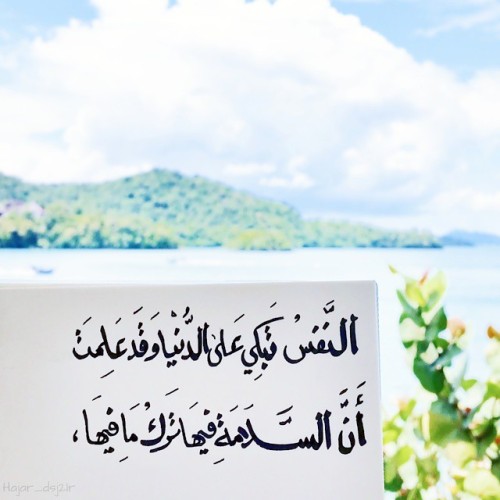 النَّفسُ تَبكِي عَلى الدُّنْيا وَقَد عَلِمَتْ
أَنَّ السَّلَامَةَ فِيهَا تَركُ مَا فِيهَا،
Hajar_dsj2r